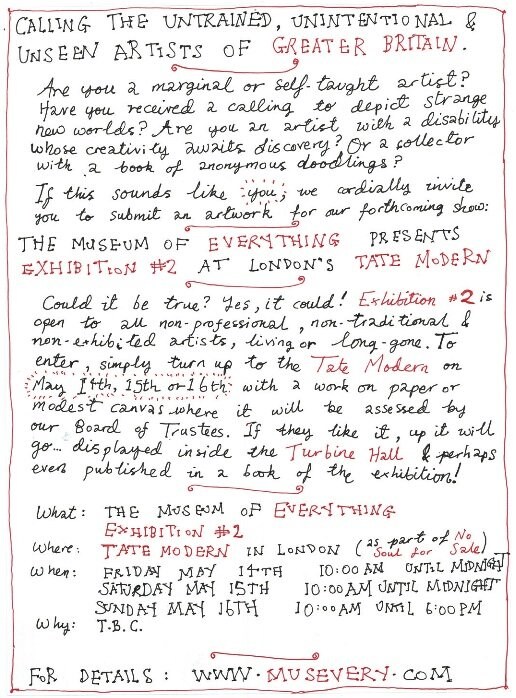 CALLING THE UNTRAINED, UNINTENTIONAL &
UNSEEN ARTISTS OF GREATER BRITAIN.
Are you a marginal or self-taught artist?
Have you received a calling to depict strange
new worlds? Are you an artist with a disability
whose creativity awaits discovery? Or a collector
with a book of anonymous doodlings?
If this sounds like you, we cordially invite
you to submit an artwork for our forthcoming show:
THE MUSEUM OF EVERYTHING PRESENTS
EXHIBITION #2 AT LONDON'S TATE MODERN
Could it be true? Yes, it could! Exhibition #2 is
open to all non-professional, non-traditional &
non-exhibited artists, living or long-gone. To
enter, simply turn up to the Tate Modern on
May 14th, 15th or 16th with a work on paper or
modest canvas where it will be assessed by
our Board of Trustees. If they like it, up it will
go... displayed inside the Turbine Hall & perhaps
even published in a book of the exhibition!
What: THE MUSEUM OF EVERYTHING
EXHIBITION #2
Where: TATE MODERN IN LONDON (as part of No
Soul for Sale)
When: FRIDAY MAY 14TH 10:00AM UNTIL MIDNIGHT
SATURDAY MAY 15TH 10:00AM UNTIL MIDNIGHT
SUNDAY MAY 16TH 10:00AM UNTIL 6:00PM
Why: T.B.C.
FOR DETAILS: WWW.MUSEVERY.COM